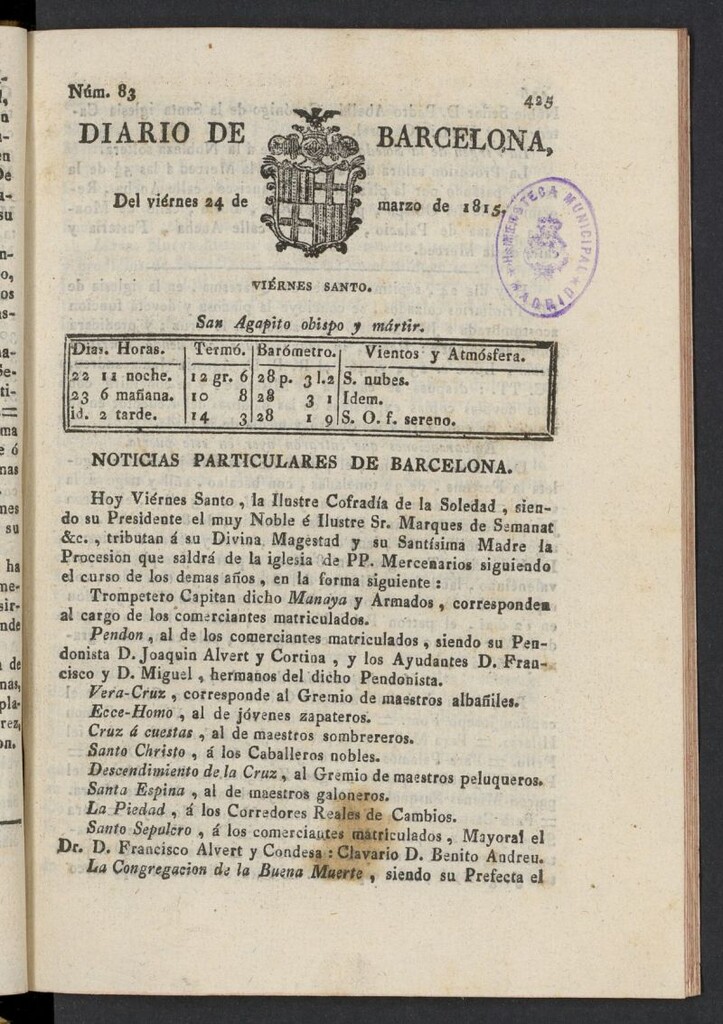 Núm. 83
425
DIARIO DE BARCELONA,
Del viérnes 24 de marzo de 1815.
HEMEROTECA MUNICIPAL
MADRID
VIÉRNES SANTO.
San Agapito obispo y mártir.
Dias. Horas. Termó. Barómetro. Vientos y Atmósfera.
22 11 noche. 12 gr. 6 28 p. 3 l. 2 S. nubes.
23 6 mañana. 10 8 28 3 1 Idem.
id. 2 tarde. 14 3 28 1 9 S. O. f. sereno.
NOTICIAS PARTICULARES DE BARCELONA.
Hoy Viérnes Santo, la Ilustre Cofradía de la Soledad, sien-
do su Presidente el muy Noble é Ilustre Sr. Marques de Semanat
&c., tributan á su Divina Magestad y su Santísima Madre la
Procesion que saldrá de la iglesia de PP. Mercenarios siguiendo
el curso de los demas años, en la forma siguiente:
Trompetero Capitan dicho Manaya y Armados, corresponden
al cargo de los comerciantes matriculados.
Pendon, al de los comerciantes matriculados, siendo su Pen-
donista D. Joaquin Alvert y Cortina, y los Ayudantes D. Fran-
cisco y D. Miguel, hermanos del dicho Pendonista.
Vera-Cruz, corresponde al Gremio de maestros albañiles.
Ecce-Homo, al de jóvenes zapateros.
Cruz á cuestas, al de maestros sombrereros.
Santo Christo, á los Caballeros nobles.
Descendimiento de la Cruz, al Gremio de maestros peluqueros.
Santa Espina, al de maestros galoneros.
La Piedad, á los Corredores Reales de Cambios.
Santo Sepulcro, á los comerciantes matriculados, Mayoral el
Dr. D. Francisco Alvert y Condesa: Clavario D. Benito Andreu.
La Congregacion de la Buena Muerte, siendo su Prefecta el